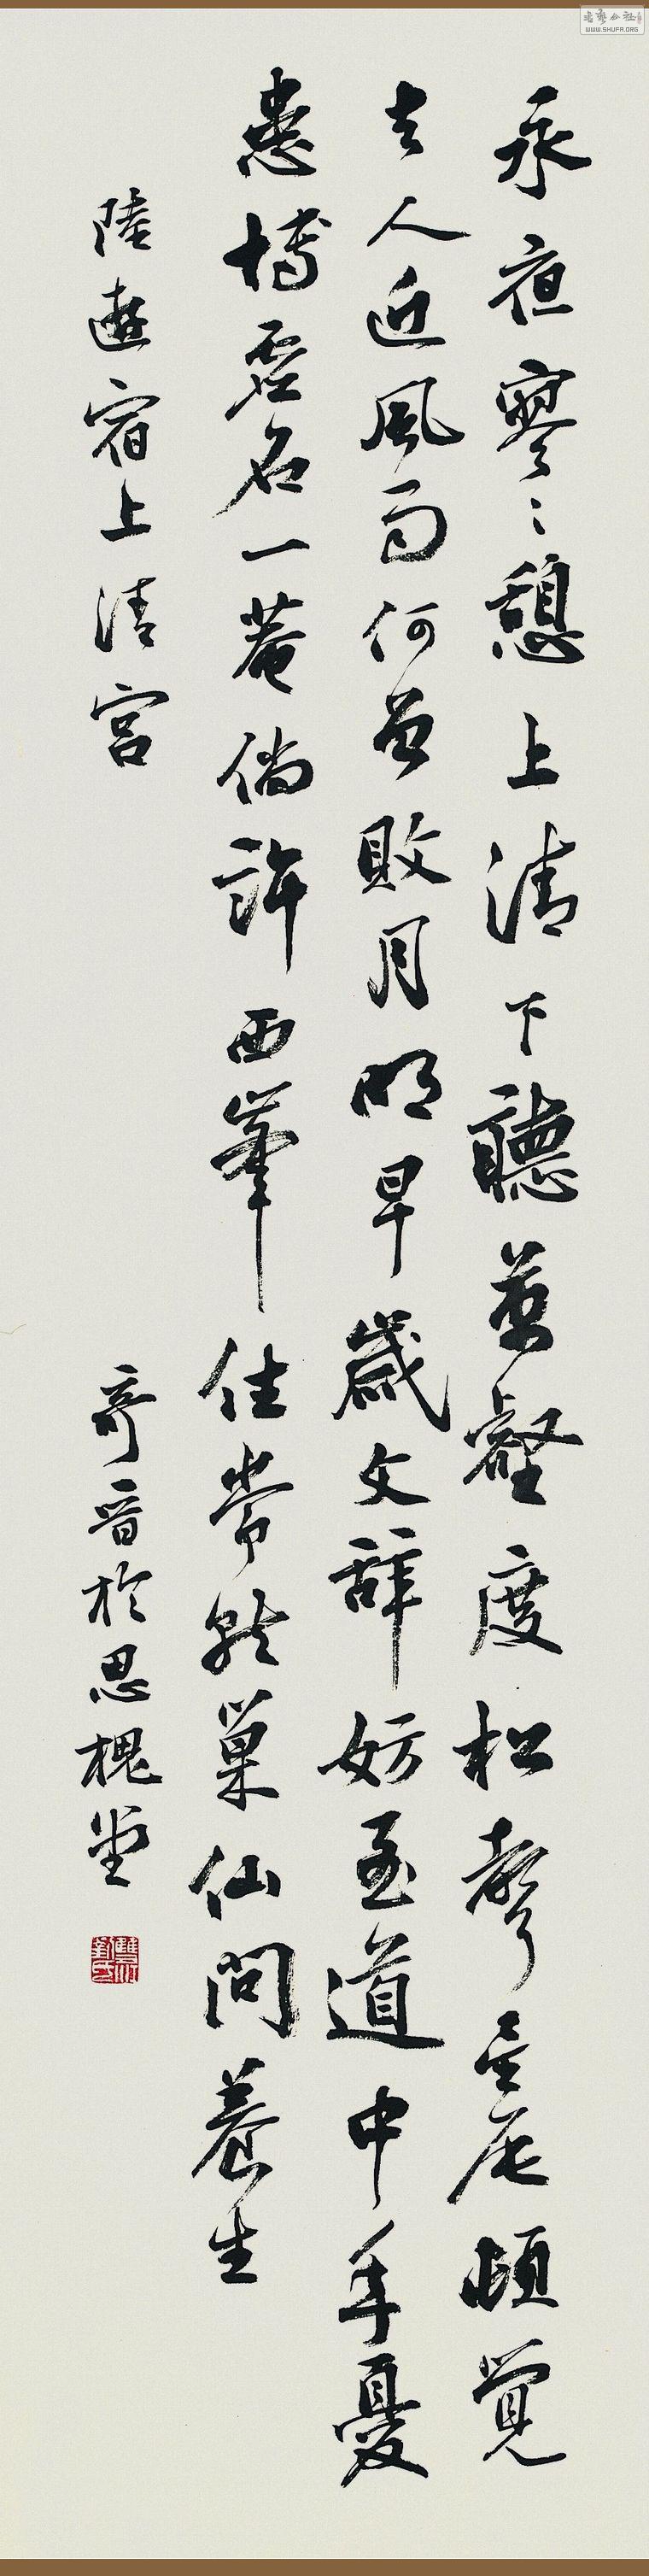 永夜寥々憩上清下聽萬壑度松聲星辰頓覺
去人近風雨何曾敗月明早歲文辭妨至道中年憂
患博虛名一菴倘許西峯住常就巢仙問養生
陸遊宿上清宮
奇晋於思槐堂
書藝公社
WWW.SHUFA.ORG